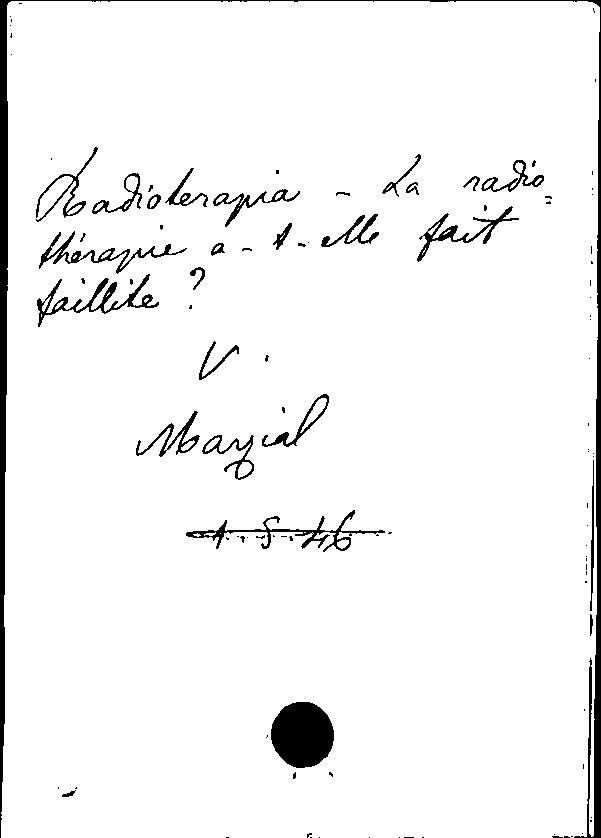 Radioterapia - La radio=
thérapie a-t-elle fait
faillite ?
V.
Marzial
1.5.46